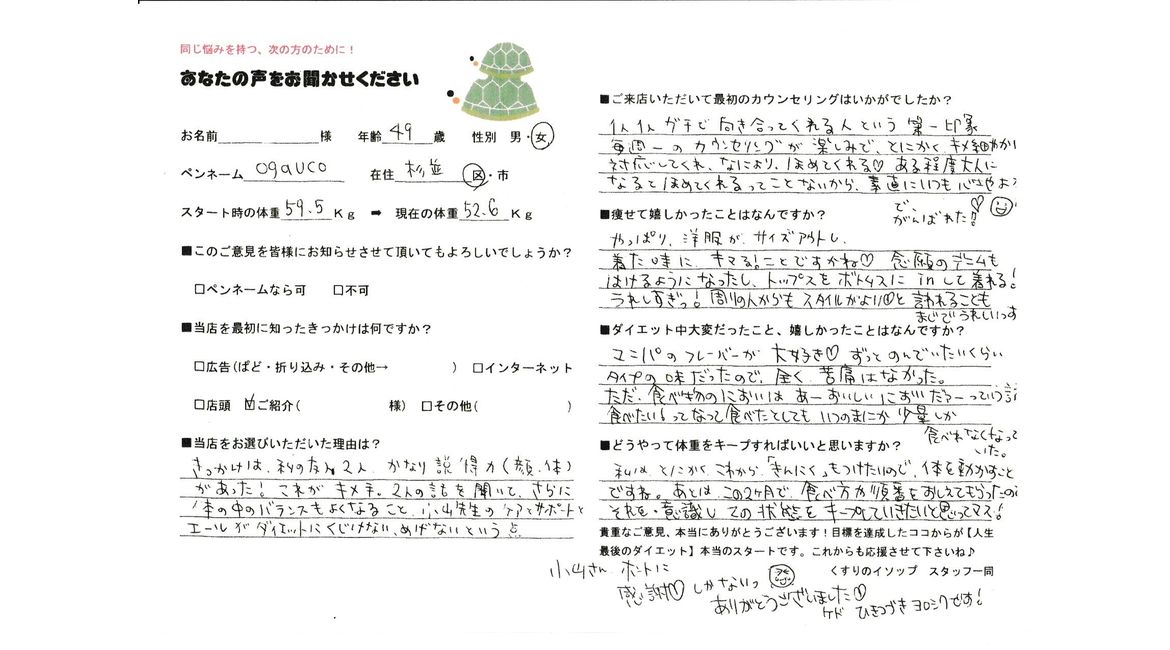 同じ悩みを持つ、次の方のために！
あなたの声をお聞かせください
お名前 様 年齢 49 歳 性別 男・女
ペンネーム ogauco 在住 杉並 区・市
スタート時の体重 59.5 Kg ➡ 現在の体重 52.6 Kg
■このご意見を皆様にお知らせさせて頂いてもよろしいでしょうか？
□ペンネームなら可 □不可
■当店を最初に知ったきっかけは何ですか？
□広告(ぱど・折り込み・その他→ ) □インターネット
□店頭 ☑ご紹介( 様) □その他( )
■当店をお選びいただいた理由は？
きっかけは、私の友人2人、かなり説得力(顔、体)
があった！これがキメ手。2人の話を聞いて、さらに
体の中のバランスもよくなること、小山先生のケアとサポートと
エールがダイエットにくじけない、めげないという点
■ご来店いただいて最初のカウンセリングはいかがでしたか？
ガチで向き合ってくれる人という第一印象
毎週一のカウンセリングが楽しみで、とにかく、キメ細やかい
対応してくれ、なにより、ほめてくれる♡ ある程度大人に
なるとほめてくれるってことないから、素直にいつも
で、がんばれた！
■痩せて嬉しかったことはなんですか？
やっぱり、洋服が、サイズアウトし、
着た時に、キマる！ことですかね♡ 念願のデニムも
はけるようになったし、トップスをボトムスにinして着れる！
うれしすぎっ！周りの人からもスタイルがよい♡と言われることも
まじでうれしいっす
■ダイエット中大変だったこと、嬉しかったことはなんですか？
マニパのフレーバーが大好き♡ ずっとのんでいたいくらい
タイプの味だったので、全く苦痛はなかった。
ただ、食べ物のにおいはあーおいしいにおいだァーっていう
食べたい！ってなって食べたとしてもいつのまにか少量しか
食べれなくなっていた。
■どうやって体重をキープすればいいと思いますか？
私は、とにかくこれから、「きんにく」もつけたいので、体を動かすこと
ですね。あとは、この2ヶ月で、食べ方や順番をおしえてもらったので
それを意識しての状態をキープしていきたいと思ってマス！
貴重なご意見、本当にありがとうございます！目標を達成したココからが【人生
最後のダイエット】本当のスタートです。これからも応援させて下さいね♪
くすりのイソップ スタッフ一同
小山さん、ホントに
感謝♡しかないっ
ありがとうございました♡
ケド ひきつづきヨロシクです！